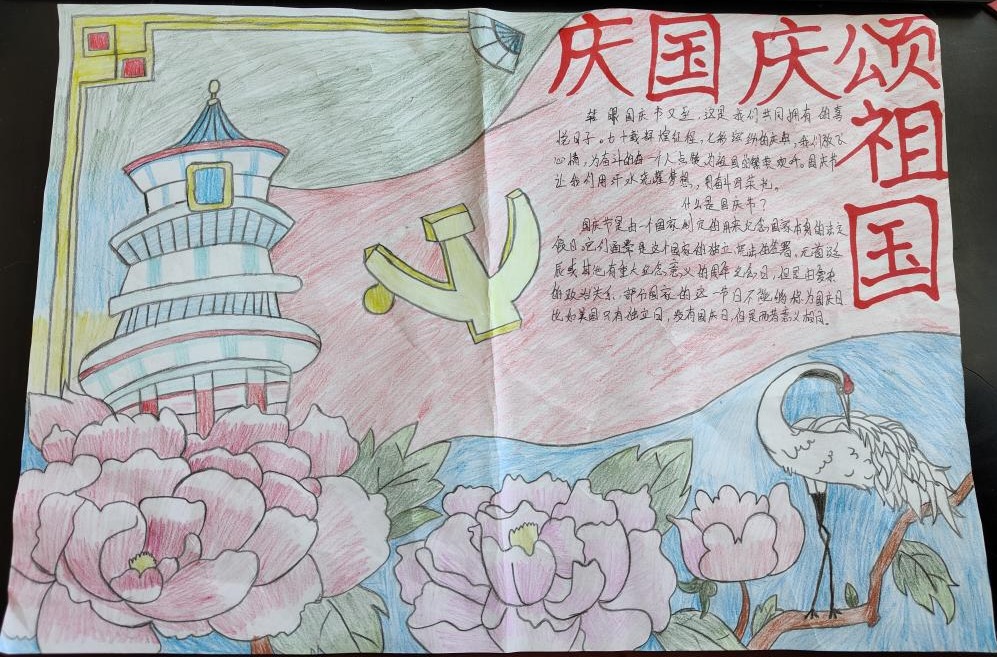 庆国庆颂祖国
转眼国庆节又至，这是我们共同拥有的喜
悦日子。七十载辉煌征程，七彩缤纷的庆典，我们放飞
心情，为奋斗的每一个人点赞为祖国的繁荣欢呼。国庆节
让我们用汗水浇灌梦想，用奋斗
什么是国庆节？
国庆节是由一个国家制定的用来纪念国家本身的法定
假日，它们通常是这个国家的独立、宪法的签署、元首诞
辰或其他有重大纪念意义的周年纪念日，但是由
的政治关系，部分国家的这一节日不能够称为国庆日
比如美国只有独立日，没有国庆日，但是两者意义相同。